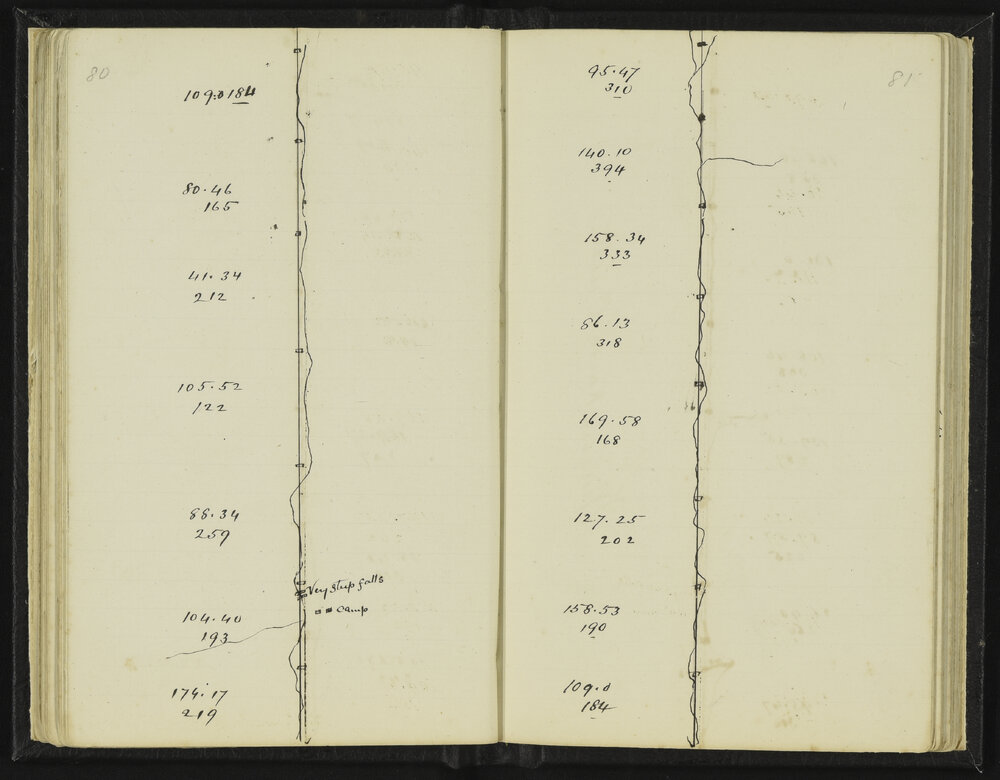 80
109.0 184
80.46
165
41.34
212
105.52
122
88.34
259
Very steep falls
camp
104.40
193
174.17
219
81
95.47
310
140.10
394
158.34
333
86.13
318
169.58
168
127.25
202
158.53
190
109.0
184